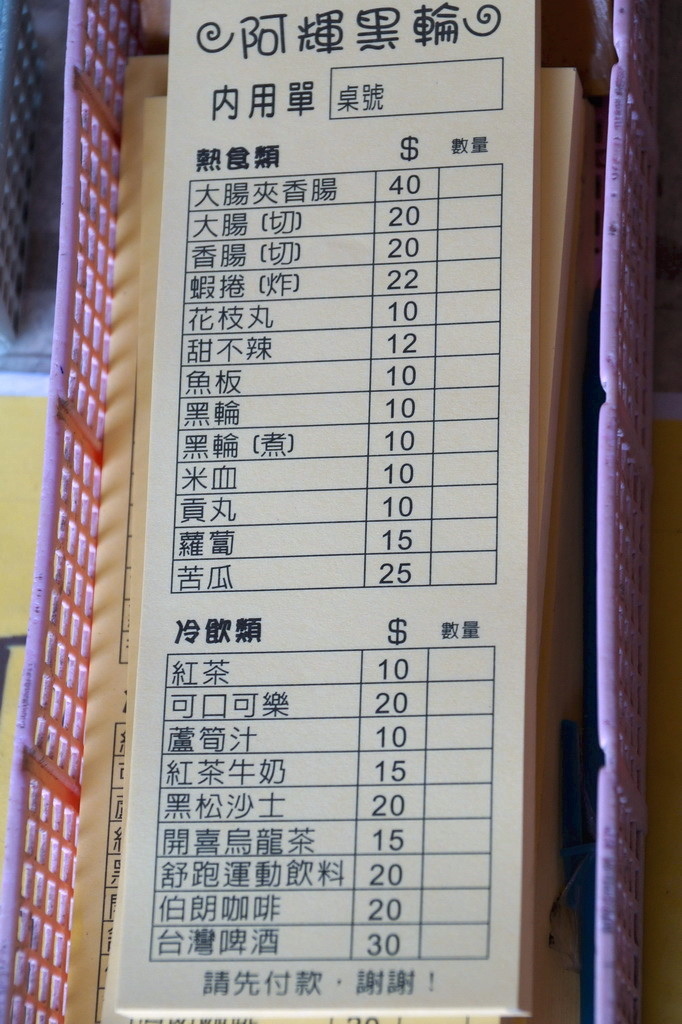 阿輝黑輪
內用單 桌號
熱食類 $ 數量
大腸夾香腸 40
大腸〔切〕 20
香腸〔切〕 20
蝦捲〔炸〕 22
花枝丸 10
甜不辣 12
魚板 10
黑輪 10
黑輪〔煮〕 10
米血 10
貢丸 10
蘿蔔 15
苦瓜 25
冷飲類 $ 數量
紅茶 10
可口可樂 20
蘆筍汁 10
紅茶牛奶 15
黑松沙士 20
開喜烏龍茶 15
舒跑運動飲料 20
伯朗咖啡 20
台灣啤酒 30
請先付款，謝謝！